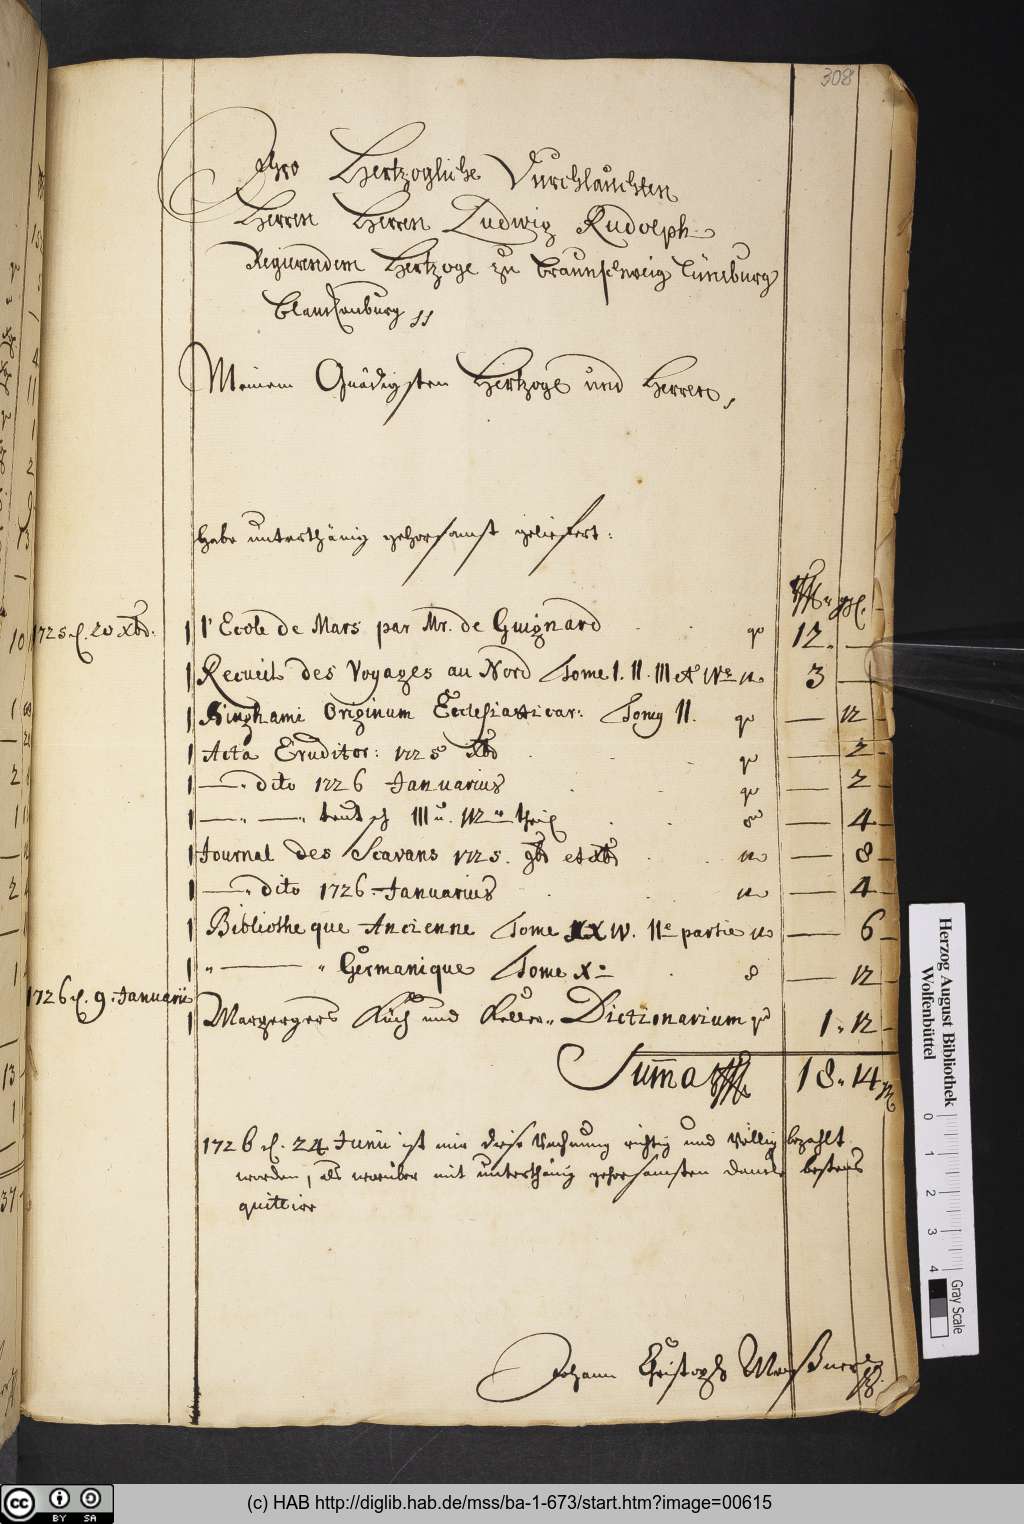 308
Ihro Hertzogliche Durchlauchten
Herren Herren Ludwig Rudolph
Regierendem Hertzoge zu Braunschweig Lüneburg
Blanckenburg
Meinem Gnädigsten Hertzoge und Herren,
habe unterthänig gehorsamst geliefert:
1725 d. 20 Xbr: 1 l'Ecole de Mars par Mr. de Guignard 12. —
1 Recueil des Voyages au Nord Tome I. II. III et IVe 3 —
1 Binghami Originum Ecclesiasticar: Tomy II. — 12 —
1 Acta Eruditor: 1725 Xbr — 2 —
1 — dito 1726 Januarius — 2 —
1 — " — " teutsch III u. theil — 4 —
1 Journal des Scavans 1725. 9br et Xbr — 8 —
1 — " dito 1726. Januarius — 4 —
1 Bibliotheque Ancienne Tome XXIV. IIe partie — 6 —
1 " — " Germanique Tome X — 12 —
1726 d. 9. Januarii
1 Margergers Küch und Keller " Dictionarium 1 " 12 —
Summa 18 " 14
1726 d. 24 Junii ist mir diese Rechnung richtig und völlig bezahlt
worden, als worüber mit unterthänig gehorsamsten Dancke bestens
quittire
Johann Christoph Meißner
Herzog August Bibliothek
Wolfenbüttel
0 1 2 3 4
Gray Scale
cc BY SA
(c) HAB http://diglib.hab.de/mss/ba-1-673/start.htm?image=00615